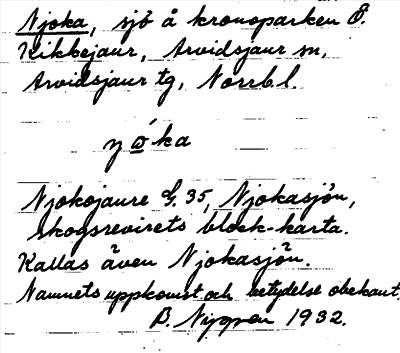 Njoka, sjö å kronoparken Ö.
Kikkejaur, Arvidsjaur sn,
Arvidsjaur tg, Norrb.l.
Njokojaure G. 35, Njokasjön,
skogsrevirets block-karta.
Kallas även Njokasjön.
Namnets uppkomst och betydelse obekant.
B. Nyman 1932.